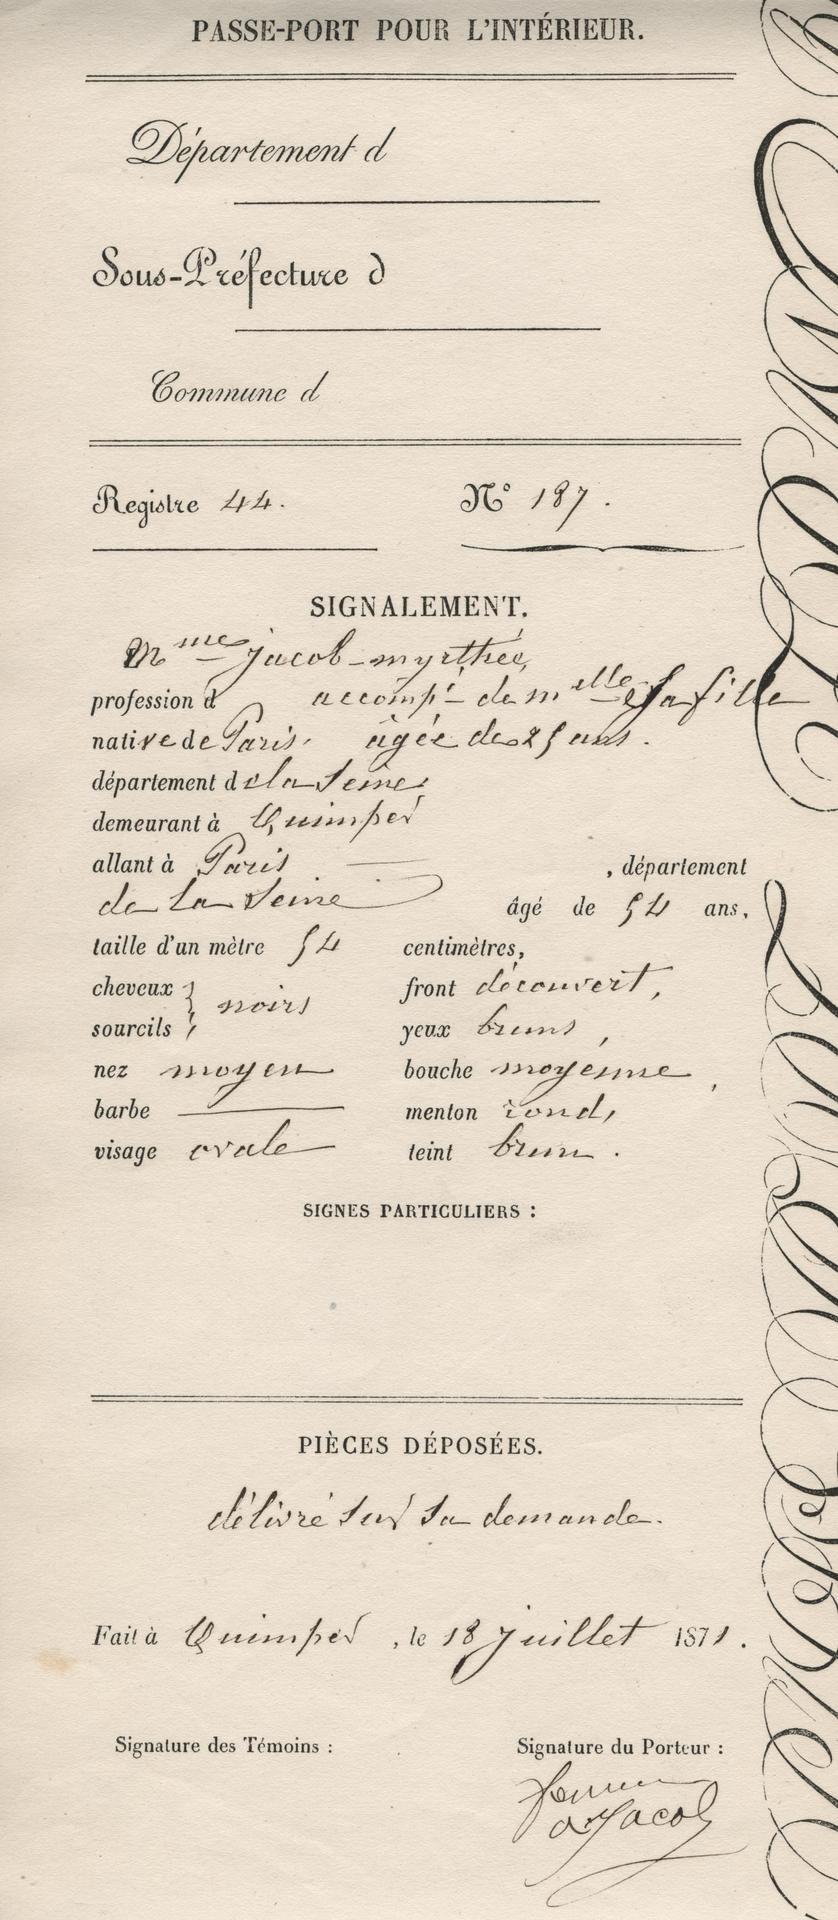 PASSE-PORT POUR L'INTÉRIEUR.
Département d
Sous-Préfecture d
Commune d
Registre 44. N° 187.
SIGNALEMENT.
Mme Jacob-myrthée,
profession d accompé de melle sa fille
native de Paris. âgée de 25 ans.
département de la Seine
demeurant à Quimper
allant à Paris , département
de la Seine âgé de 54 ans,
taille d'un mètre 54 centimètres,
cheveux } noirs front découvert,
sourcils yeux bruns,
nez moyen bouche moyenne,
barbe — menton rond,
visage ovale teint brun.
SIGNES PARTICULIERS :
PIÈCES DÉPOSÉES.
délivré sur sa demande.
Fait à Quimper, le 18 juillet 1871.
Signature des Témoins : Signature du Porteur :
Jacob